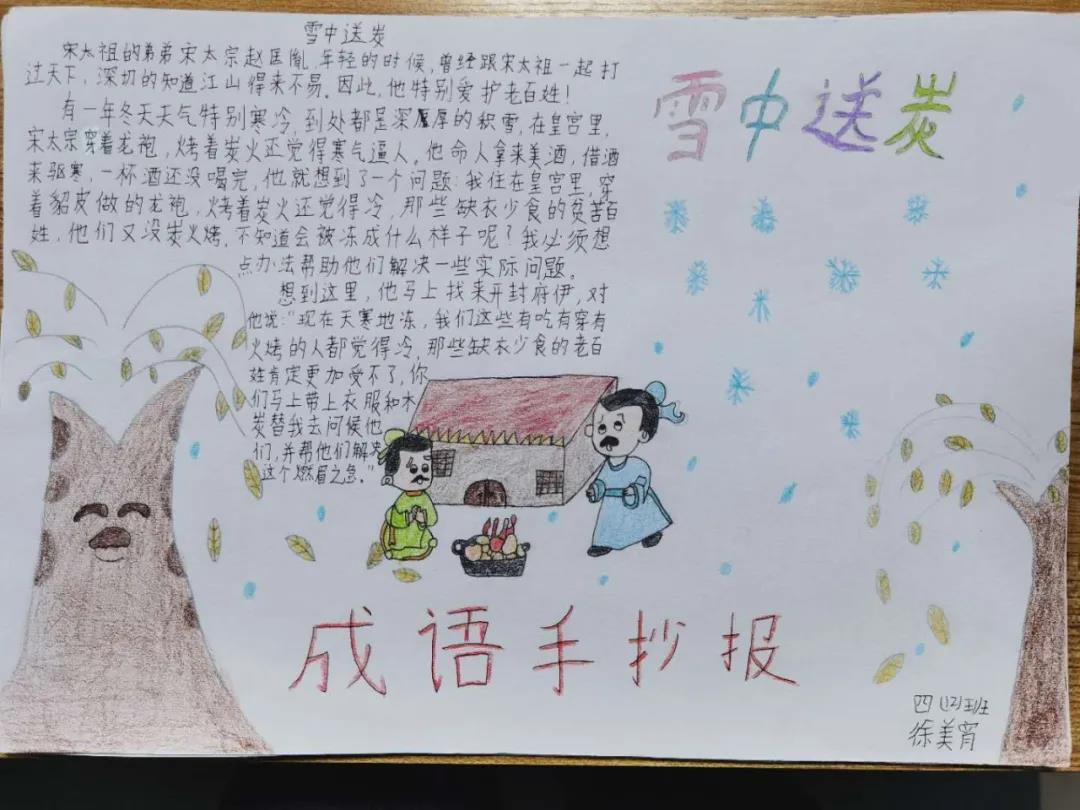 雪中送炭
宋太祖的弟弟宋太宗赵匡胤,年轻的时候,曾经跟宋太祖一起打
过天下,深切的知道江山得来不易。因此,他特别爱护老百姓!
有一年冬天天气特别寒冷,到处都是深厚厚的积雪,在皇宫里,
宋太宗穿着龙袍,烤着炭火还觉得寒气逼人。他命人拿来美酒,借酒
来驱寒,一杯酒还没喝完,他就想到了一个问题:我住在皇宫里,穿
着貂皮做的龙袍,烤着炭火还觉得冷,那些缺衣少食的贫苦百
姓,他们又没炭火烤,不知道会被冻成什么样子呢?我必须想
点办法帮助他们解决一些实际问题。
想到这里,他马上找来开封府伊,对
他说:“现在天寒地冻,我们这些有吃有穿有
火烤的人都觉得冷,那些缺衣少食的老百
姓肯定更加受不了,你
们马上带上衣服和木
炭替我去问候他
们,并帮他们解决
这个燃眉之急。”
雪中送炭
成语手抄报
四(12)班
徐美宵